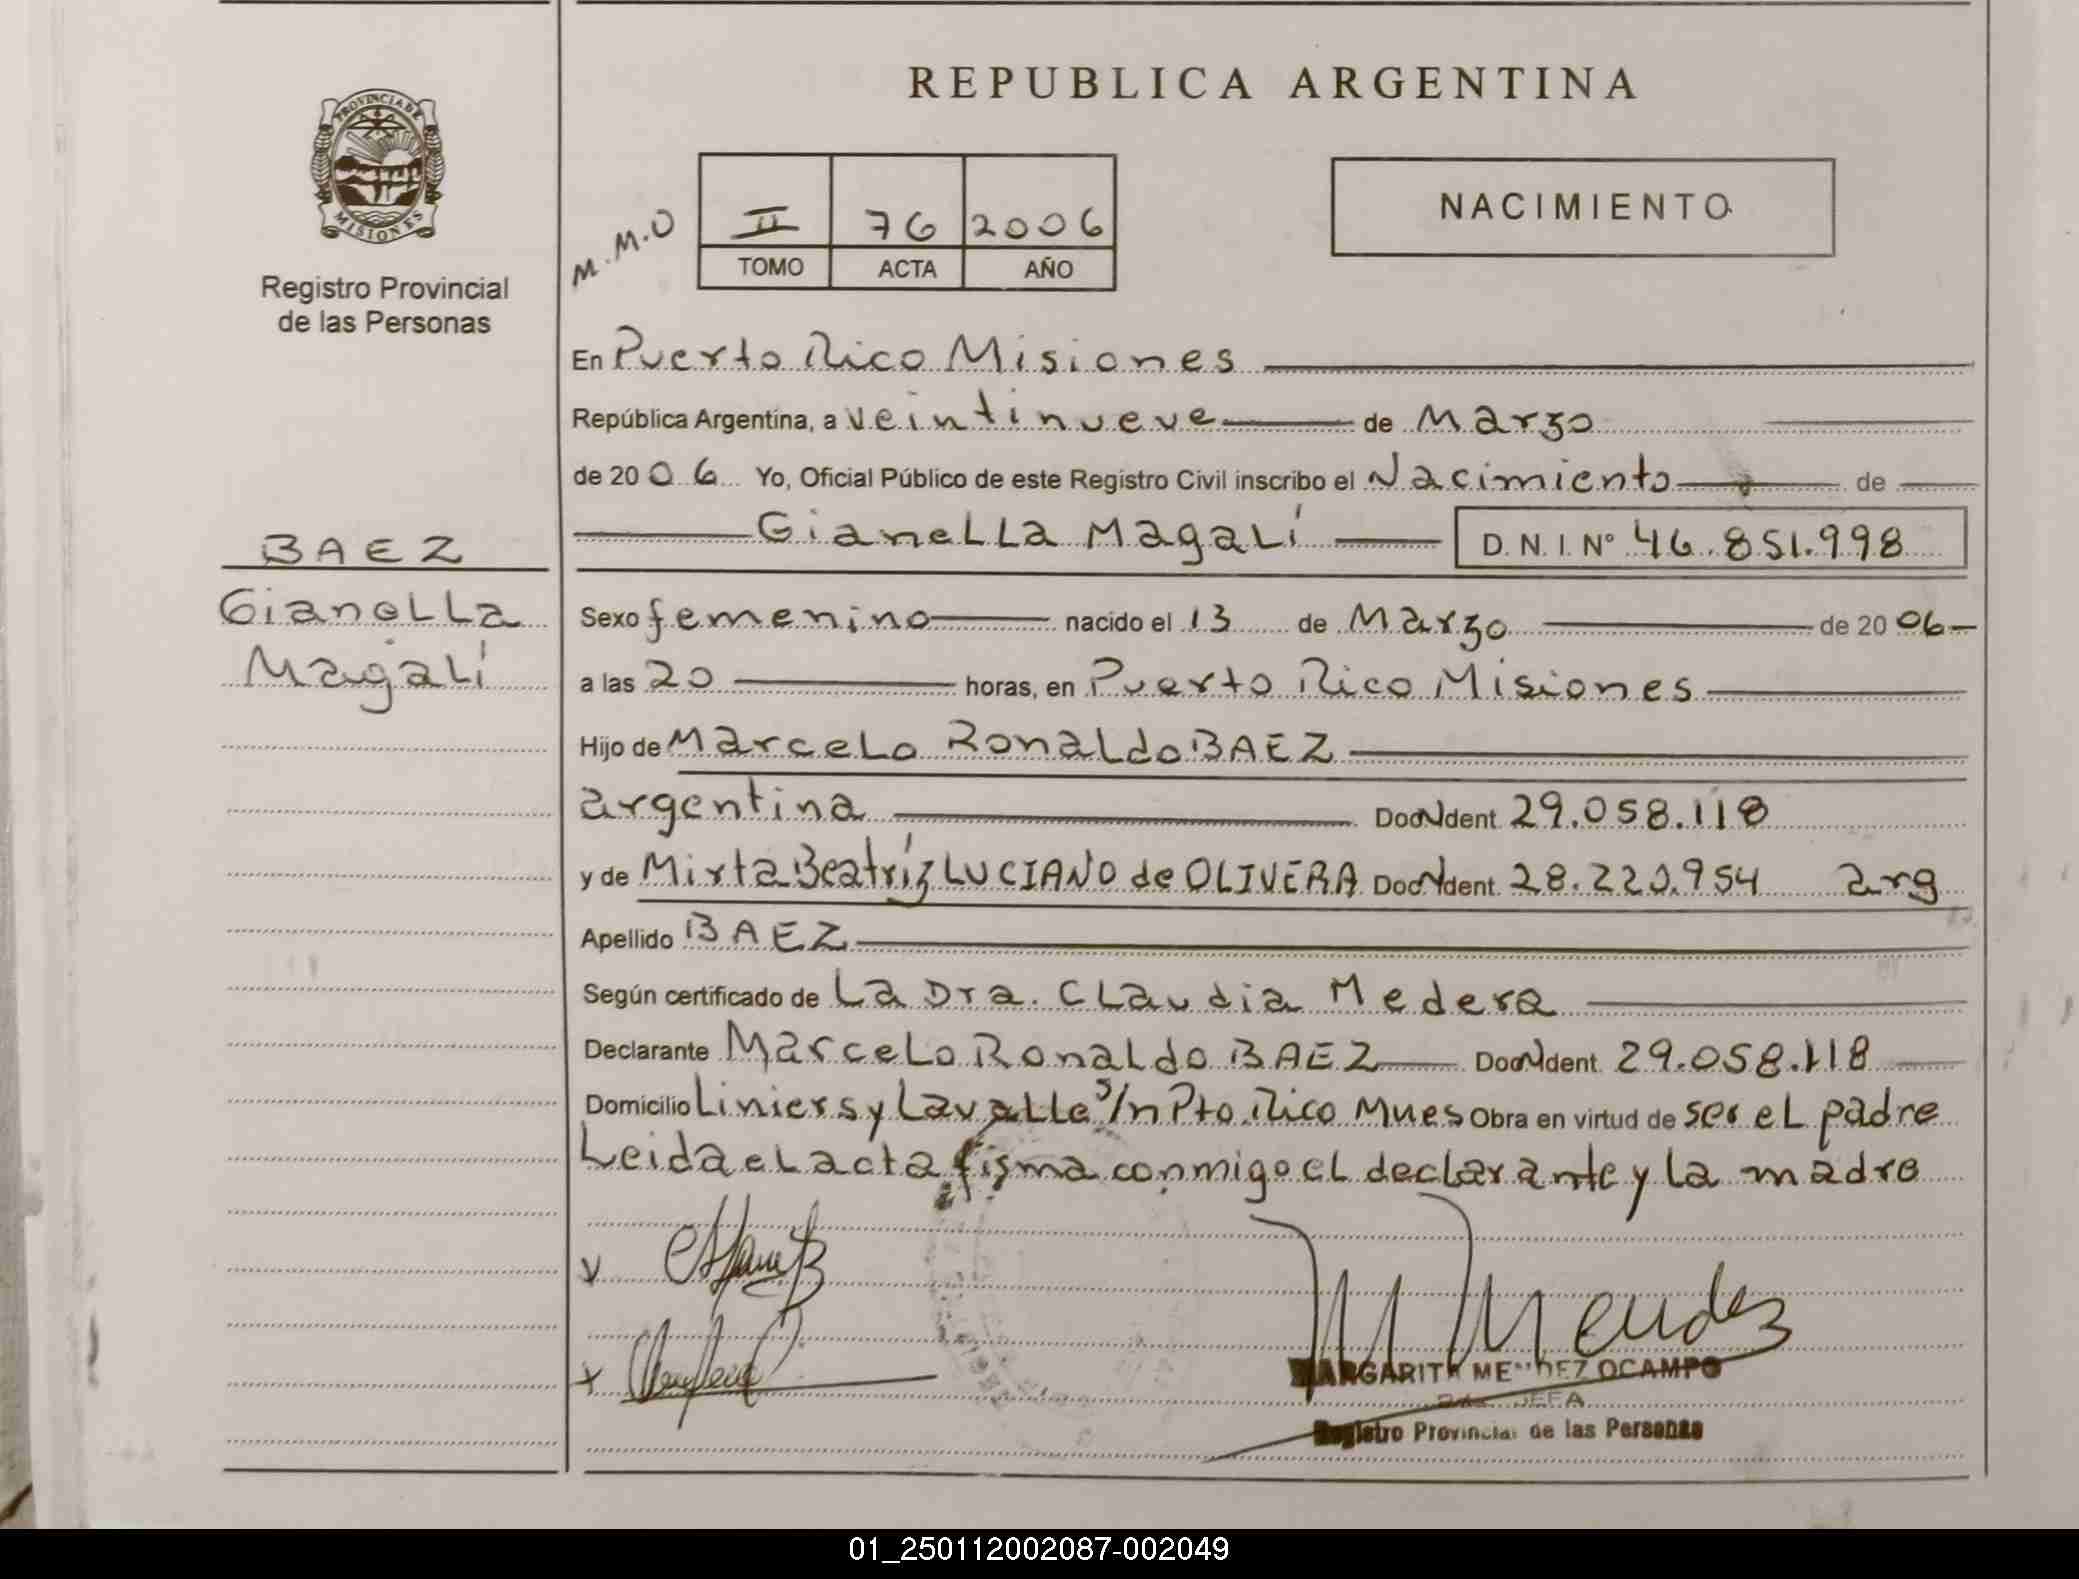 REPUBLICA ARGENTINA
PROVINCIA DE
MISIONES
Registro Provincial
de las Personas
M.M.O
II 76 2006
TOMO ACTA AÑO
NACIMIENTO
En Puerto Rico Misiones
República Argentina, a veintinueve de Marzo
de 2006 Yo, Oficial Público de este Registro Civil inscribo el Nacimiento de
Gianella Magalí D.N.I. Nº 46.851.998
BAEZ
Gianella
Magalí
Sexo femenino nacido el 13 de Marzo de 2006
a las 20 horas, en Puerto Rico Misiones
Hijo de Marcelo Ronaldo BAEZ
argentina Doc Ndent. 29.058.118
y de Mirta Beatríz LUCIANO de OLIVERA Doc Ndent. 28.220.954 arg
Apellido BAEZ
Según certificado de La Dra. Claudia Medera
Declarante Marcelo Ronaldo BAEZ Doc Ndent. 29.058.118
Domicilio Liniers y Lavalle S/n Pto. Rico Mnes Obra en virtud de ser el padre
Leida el acta firma conmigo el declarante y la madre
M Mendez
MARGARITA MENDEZ OCAMPO
JEFA
Registro Provincial de las Personas
01_250112002087-002049